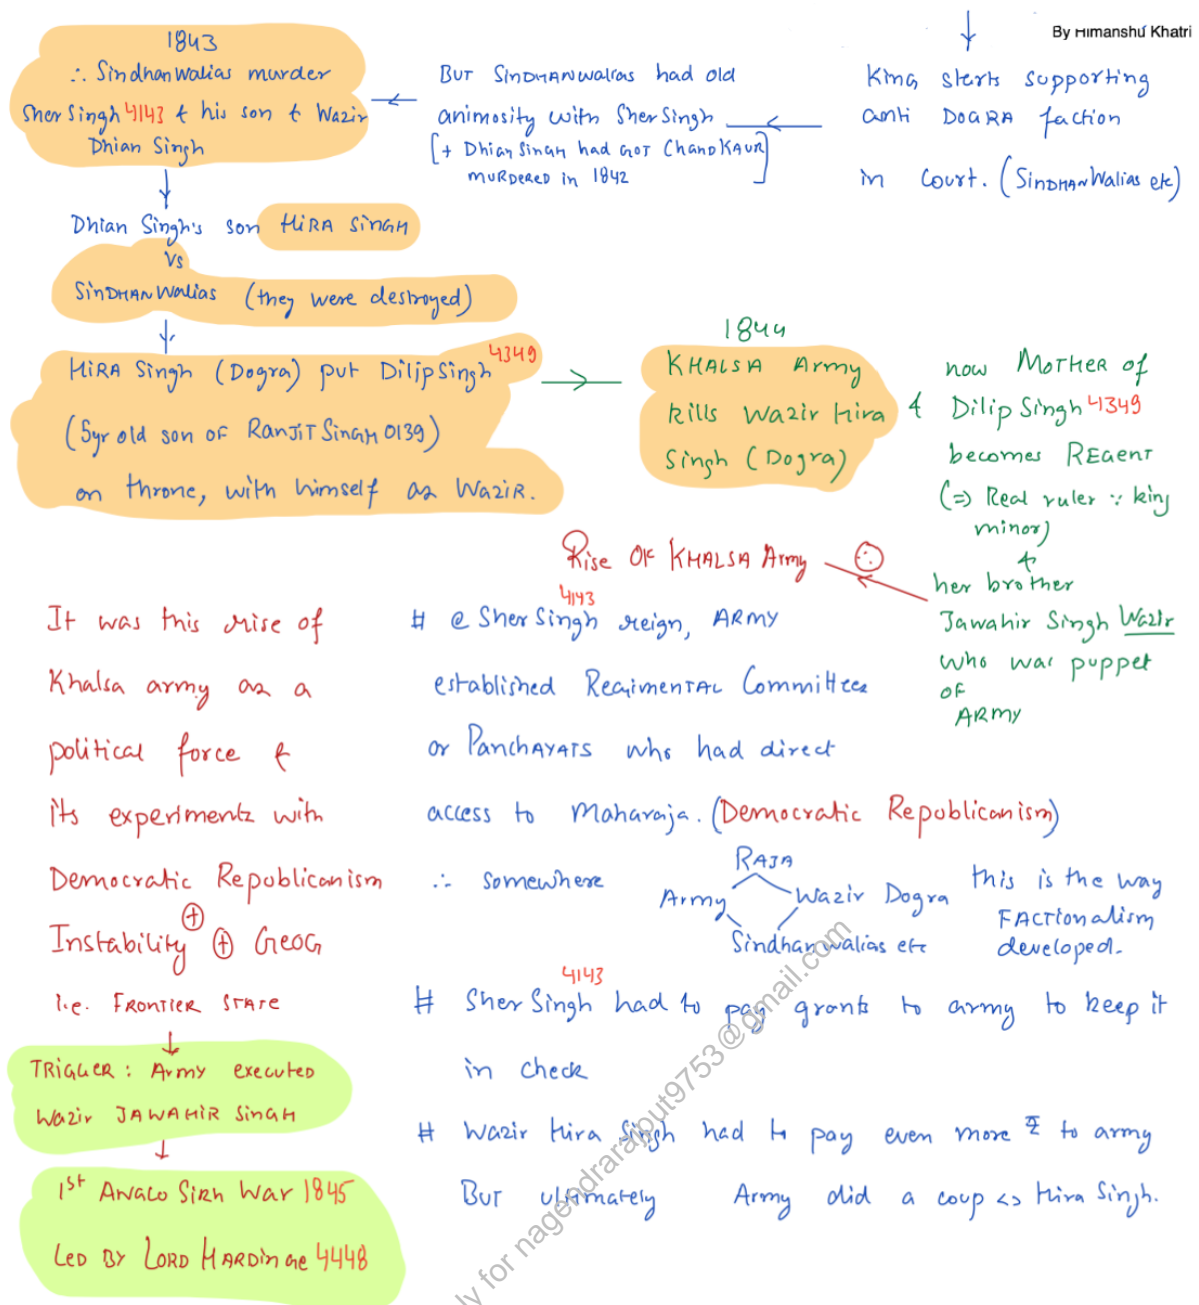 By Himanshu Khatri
King starts supporting
anti DOGRA faction
in Court. (SINDHANWalias etc)
BUT SINDHANWalias had old
animosity with Sher Singh
[+ Dhian Singh had GOT CHANDKAUR]
MURDERED in 1842
1843
∴ Sindhanwalias murder
Sher Singh 4143 & his son & Wazir
Dhian Singh
Dhian Singh's son HIRA SINGH
Vs
SINDHANWalias (they were destroyed)
HIRA Singh (Dogra) put Dilip Singh 4349
(5yr old son of RANJIT SINGH 0139)
on throne, with himself as WAZIR.
1844
KHALSA Army
kills Wazir Hira
Singh (Dogra)
now MOTHER of
& Dilip Singh 4349
becomes REGENT
(⇒ Real ruler ∵ king
minor)
&
her brother
Jawahir Singh Wazir
who was puppet
OF
ARMY
Rise OF KHALSA Army
It was this rise of
Khalsa army as a
political force &
its experiments with
Democratic Republicanism
⊕
Instability ⊕ GEOG
i.e. FRONTIER STATE
TRIGGER: Army executed
Wazir JAWAHIR SINGH
1st ANGLO SIKH WAR 1845
LED BY LORD HARDINGE 4448
4143
# @ Sher Singh reign, ARMY
established REGIMENTAL Committees
or PANCHAYATS who had direct
access to Maharaja. (Democratic Republicanism)
∴ somewhere
RAJA
Army Wazir Dogra
Sindhanwalias etc
this is the way
FACTIONALISM
developed.
4143
# Sher Singh had to pay grants to army to keep it
in check
# Wazir Hira Singh had to pay even more ₹ to army
BUT ultimately Army did a coup <> Hira Singh.
ly for nagendrarajput9753@gmail.com